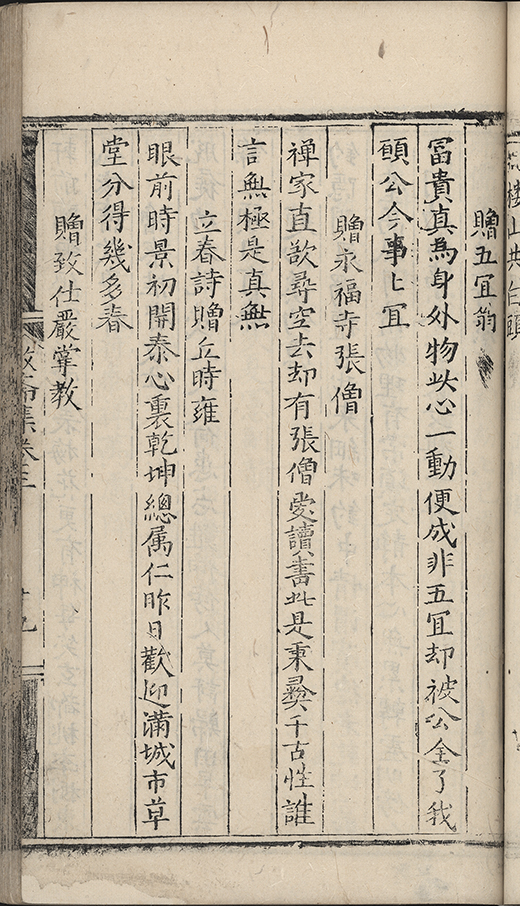 樓山共白頭
贈五冝翁
冨貴真為身外物此心一動便成非五冝却被公全了我
頋公今事〻冝
贈永福寺張僧
禅家直欲尋空去却有張僧愛讀書此是秉彞千古性誰
言無極是真無
立春詩贈丘時雍
眼前時景初開泰心裏乾坤總属仁昨日歡迎滿城市草
堂分得幾多春
贈致仕嚴掌教
齋集卷三
十九